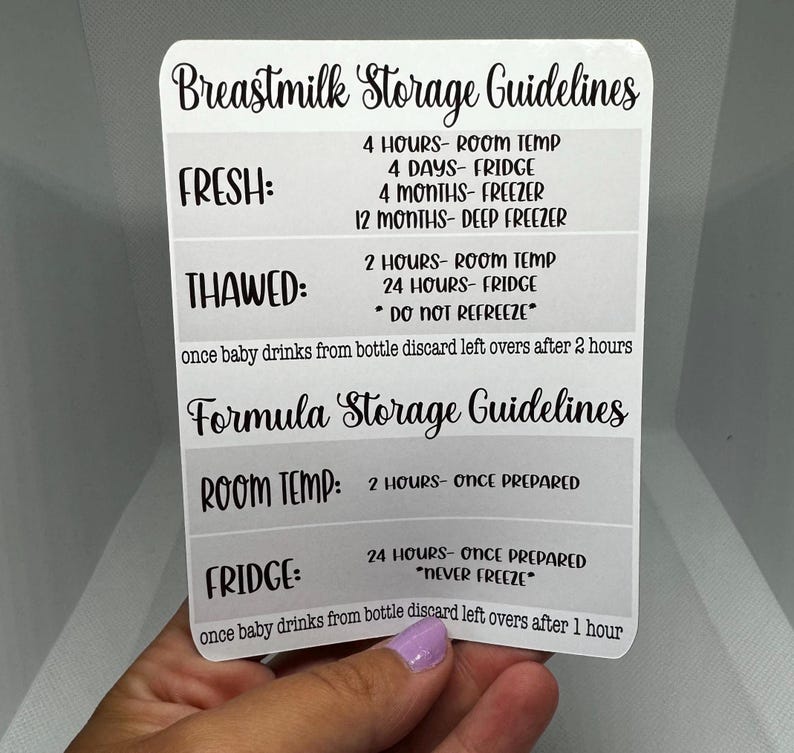 Breastmilk Storage Guidelines
FRESH:
4 HOURS- ROOM TEMP
4 DAYS- FRIDGE
4 MONTHS- FREEZER
12 MONTHS- DEEP FREEZER
THAWED:
2 HOURS- ROOM TEMP
24 HOURS- FRIDGE
* DO NOT REFREEZE*
once baby drinks from bottle discard left overs after 2 hours
Formula Storage Guidelines
ROOM TEMP:
2 HOURS- ONCE PREPARED
FRIDGE:
24 HOURS- ONCE PREPARED
*NEVER FREEZE*
once baby drinks from bottle discard left overs after 1 hour